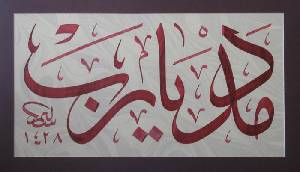 مدد يا رب
١٤٢٨